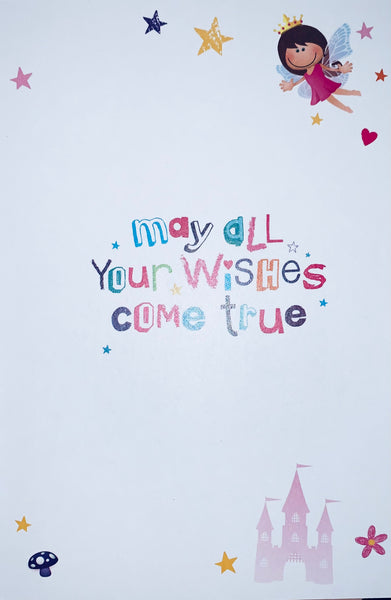 may all
Your Wishes
come true